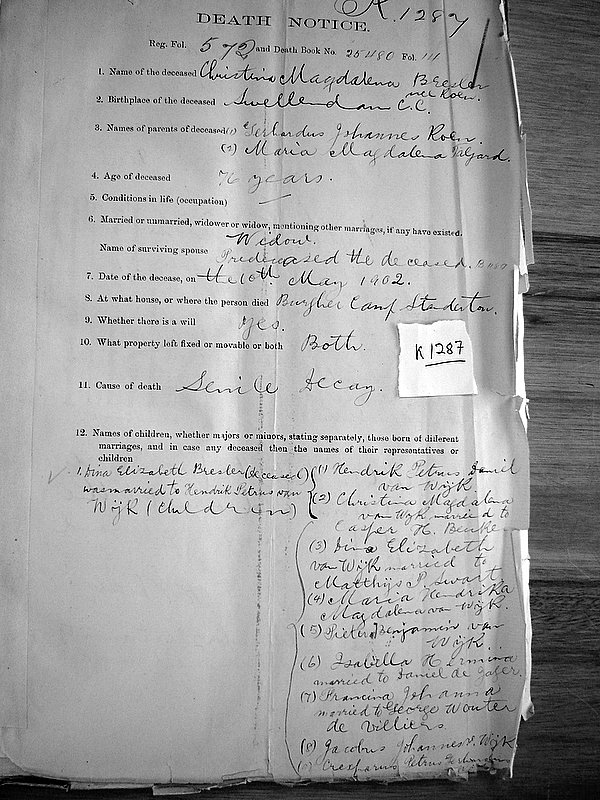 K.1287
DEATH NOTICE.
Reg. Fol. 572 and Death Book No. 25480 Fol. 14
1. Name of the deceased Christina Magdalena Bresler
nee Roen.
2. Birthplace of the deceased Swellendam C.C.
3. Names of parents of deceased (1) Gerhardus Johannes Roen.
(2) Maria Magdalena
4. Age of deceased 76 years.
5. Conditions in life (occupation) —
6. Married or unmarried, widower or widow, mentioning other marriages, if any have existed.
Widow.
Name of surviving spouse Predeceased the deceased.
7. Date of the decease, on the 10th May 1902.
8. At what house, or where the person died Burgher Camp Standerton.
9. Whether there is a will Yes.
10. What property left fixed or movable or both Both
K 1287
11. Cause of death Senile Decay.
12. Names of children, whether majors or minors, stating separately, those born of different
marriages, and in case any deceased then the names of their representatives or
children
1. Dina Elizabeth Bresler (deceased)
was married to Hendrik Petrus van
Wijk (Children)
(1) Hendrik Petrus Daniel
van Wijk
(2) Christina Magdalena
van Wijk married to
Casper H. Beuke
(3) Dina Elizabeth
van Wijk married to
Matthijs P. Swart
(4) Maria Hendrika
Magdalena van Wijk.
(5) Pieter Benjamin van
Wijk.
(6) Isabella Hermina
married to Daniel de Jager.
(7) Francina Johanna
married to George Wouter
de Villiers
(8) Jacobus Johannes v. Wijk
Petrus Gerhardus